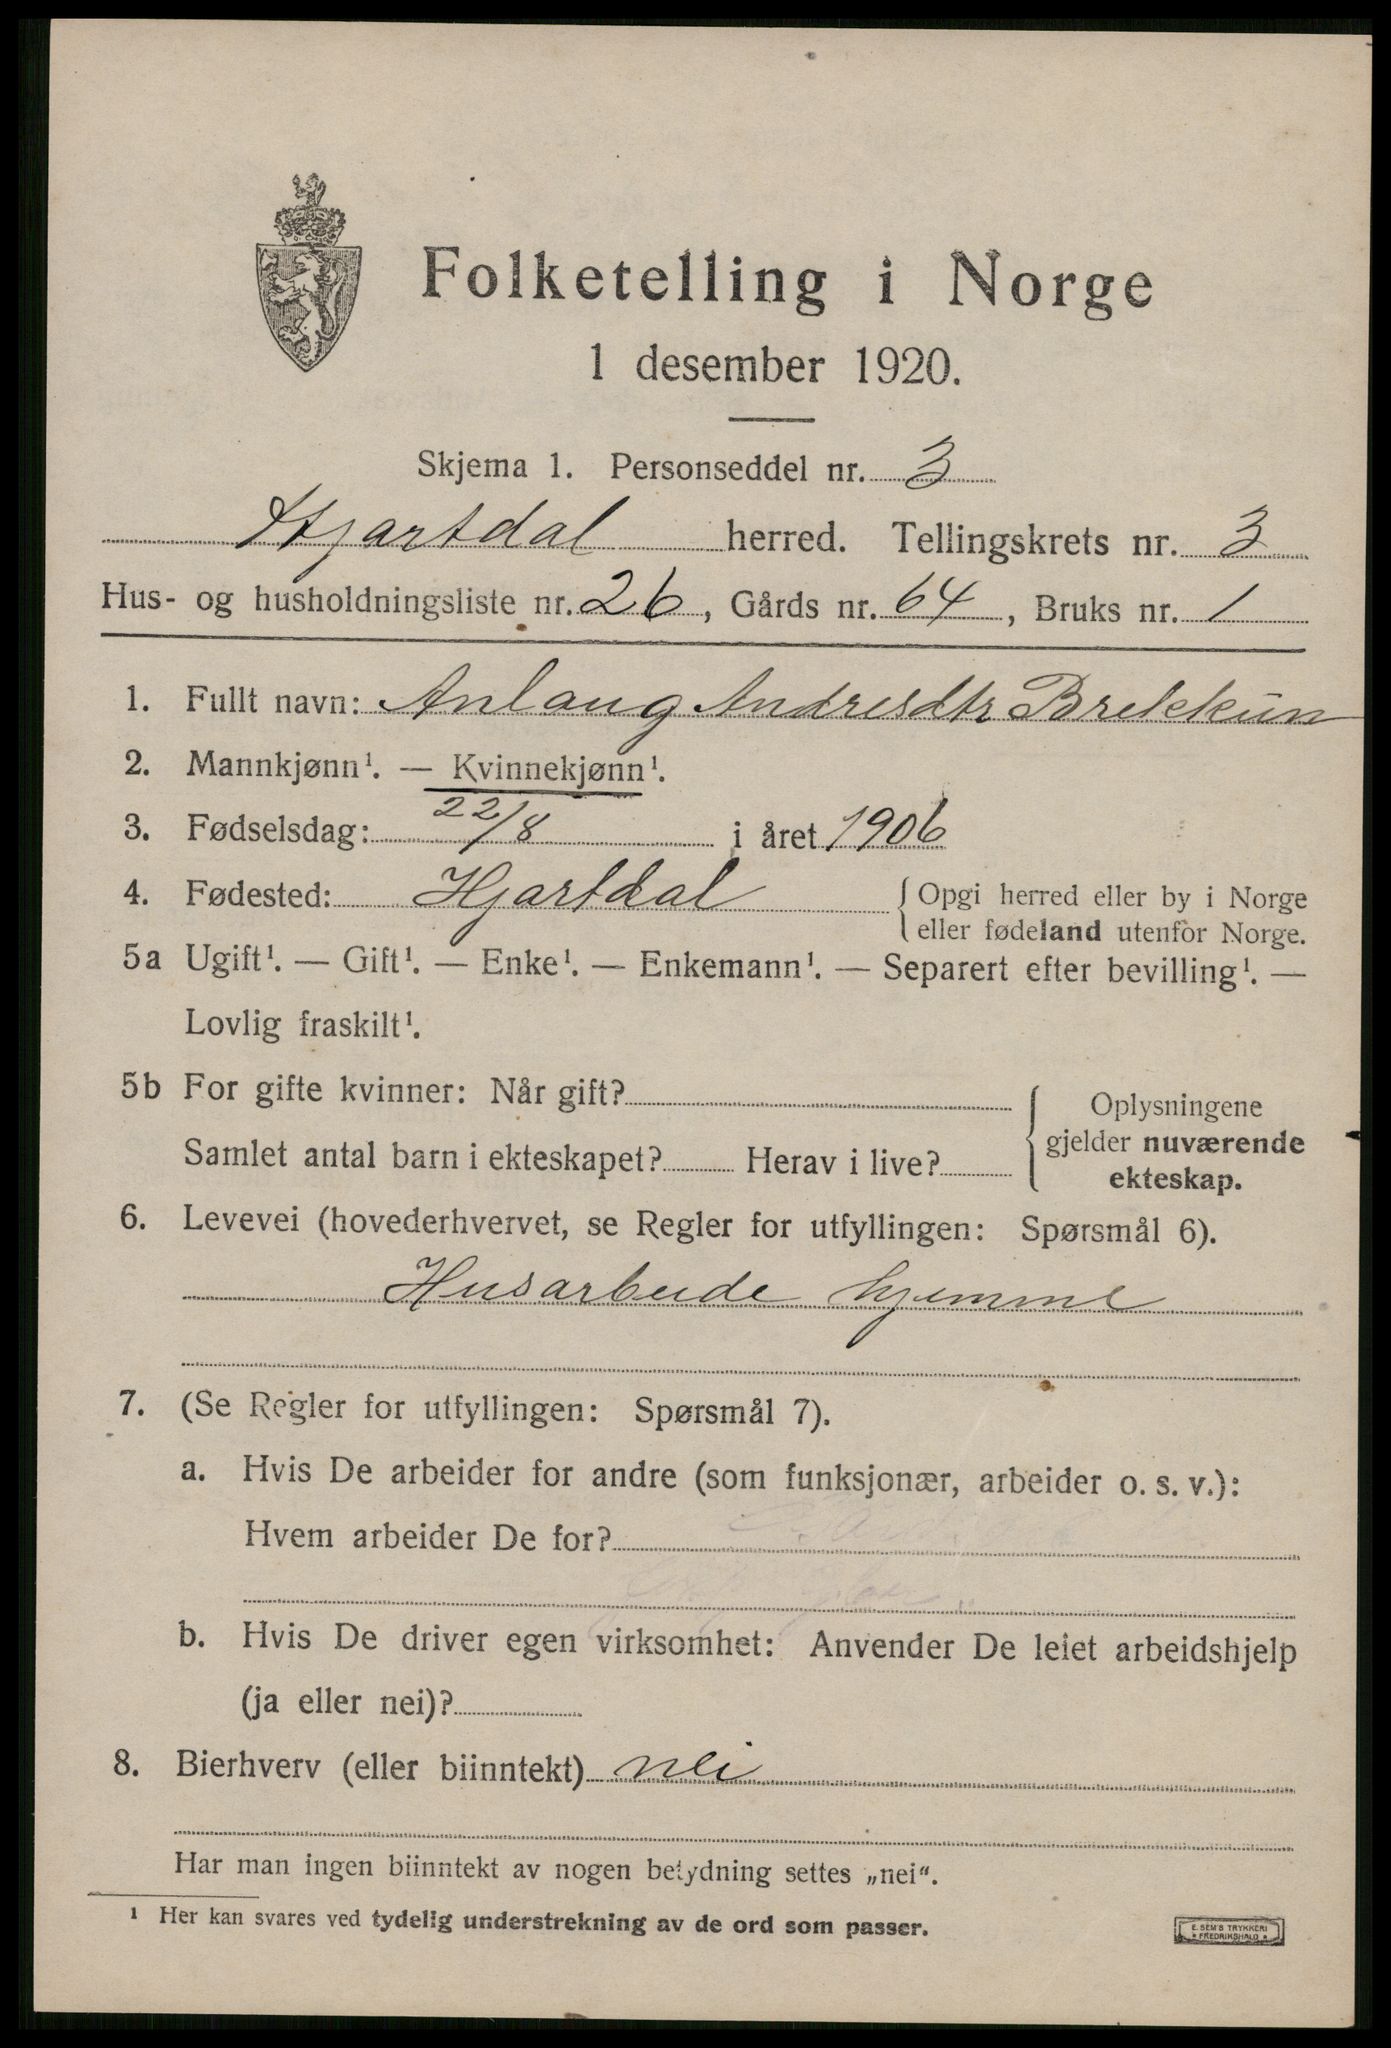 Folketelling i Norge
1 desember 1920.
Skjema 1. Personseddel nr. 3
Hjartdal herred. Tellingskrets nr. 3
Hus- og husholdningsliste nr. 26, Gårds nr. 64, Bruks nr. 1
1. Fullt navn: Anlaug Andresdtr Brekkun
2. Mannkjønn¹. — Kvinnekjønn¹.
3. Fødselsdag: 22/8 i året 1906
4. Fødested: Hjartdal { Opgi herred eller by i Norge
eller fødeland utenfor Norge.
5a Ugift¹. — Gift¹. — Enke¹. — Enkemann¹. — Separert efter bevilling¹. —
Lovlig fraskilt¹.
5b For gifte kvinner: Når gift?
Samlet antal barn i ekteskapet? Herav i live?
{ Oplysningene
gjelder nuværende
ekteskap.
6. Levevei (hovederhvervet, se Regler for utfyllingen: Spørsmål 6).
Husarbeide hjemme
7. (Se Regler for utfyllingen: Spørsmål 7).
a. Hvis De arbeider for andre (som funksjonær, arbeider o. s. v.):
Hvem arbeider De for?
b. Hvis De driver egen virksomhet: Anvender De leiet arbeidshjelp
(ja eller nei)?
8. Bierhverv (eller biinntekt) nei
Har man ingen biinntekt av nogen betydning settes „nei“.
¹ Her kan svares ved tydelig understrekning av de ord som passer.
E. SEM'S TRYKKERI
FREDRIKSHALD